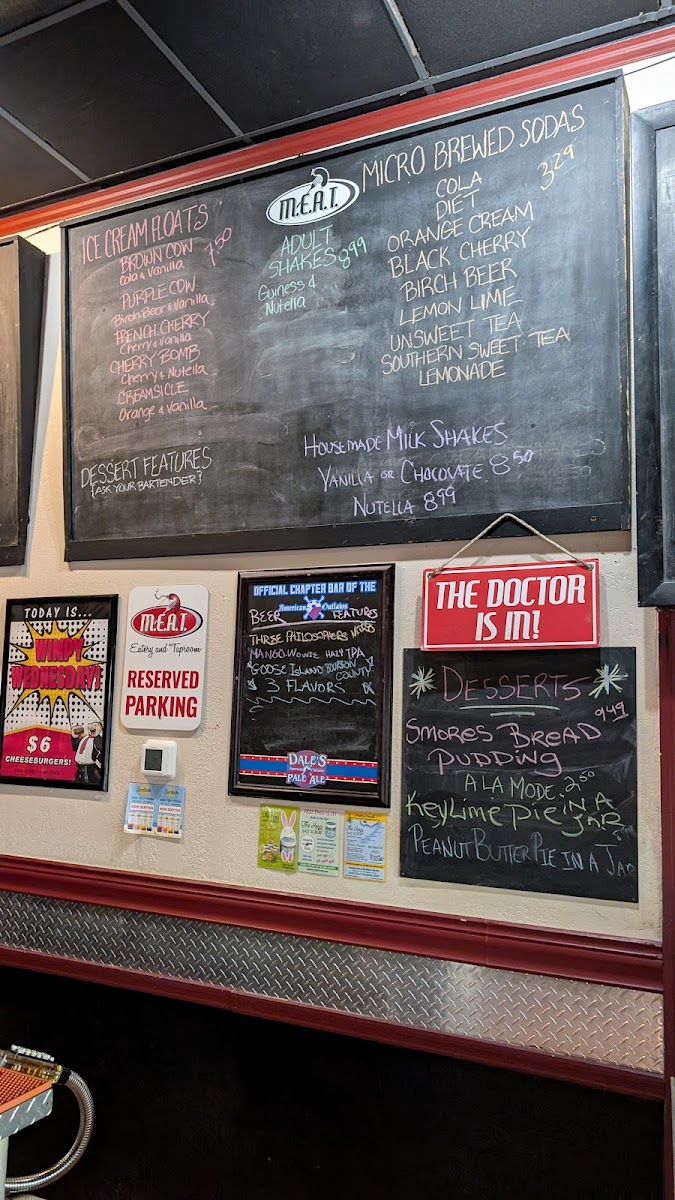 ICE CREAM FLOATS
7.50
BROWN COW
Cola & Vanilla
PURPLE COW
Birch Beer & Vanilla
FRENCH CHERRY
Cherry & Vanilla
CHERRY BOMB
Cherry & Nutella
CREAMSICLE
Orange & Vanilla
DESSERT FEATURES
{ASK YOUR BARTENDER}
M.E.A.T.
ADULT
SHAKES 8.99
Guiness &
Nutella
MICRO BREWED SODAS
3.29
COLA
DIET
ORANGE CREAM
BLACK CHERRY
BIRCH BEER
LEMON LIME
UNSWEET TEA
SOUTHERN SWEET TEA
LEMONADE
HOUSEMADE MILK SHAKES
VANILLA OR CHOCOLATE 8.50
NUTELLA 8.99
TODAY IS...
WIMPY
WEDNESDAY!
$6
CHEESEBURGERS!
M.E.A.T.
Eatery and Taproom
RESERVED
PARKING
OFFICIAL CHAPTER BAR OF THE
American Outlaws
BEER FEATURES
THREE PHILOSOPHERS
MANGO WOWIE HAZY IPA
GOOSE ISLAND BOURBON
COUNTY
3 FLAVORS
DALE'S
PALE ALE
THE DOCTOR
IS IN!
DESSERTS
9.49
SMORES BREAD
PUDDING
A LA MODE 2.50
KEY LIME PIE IN A
JAR
PEANUT BUTTER PIE IN A JAR